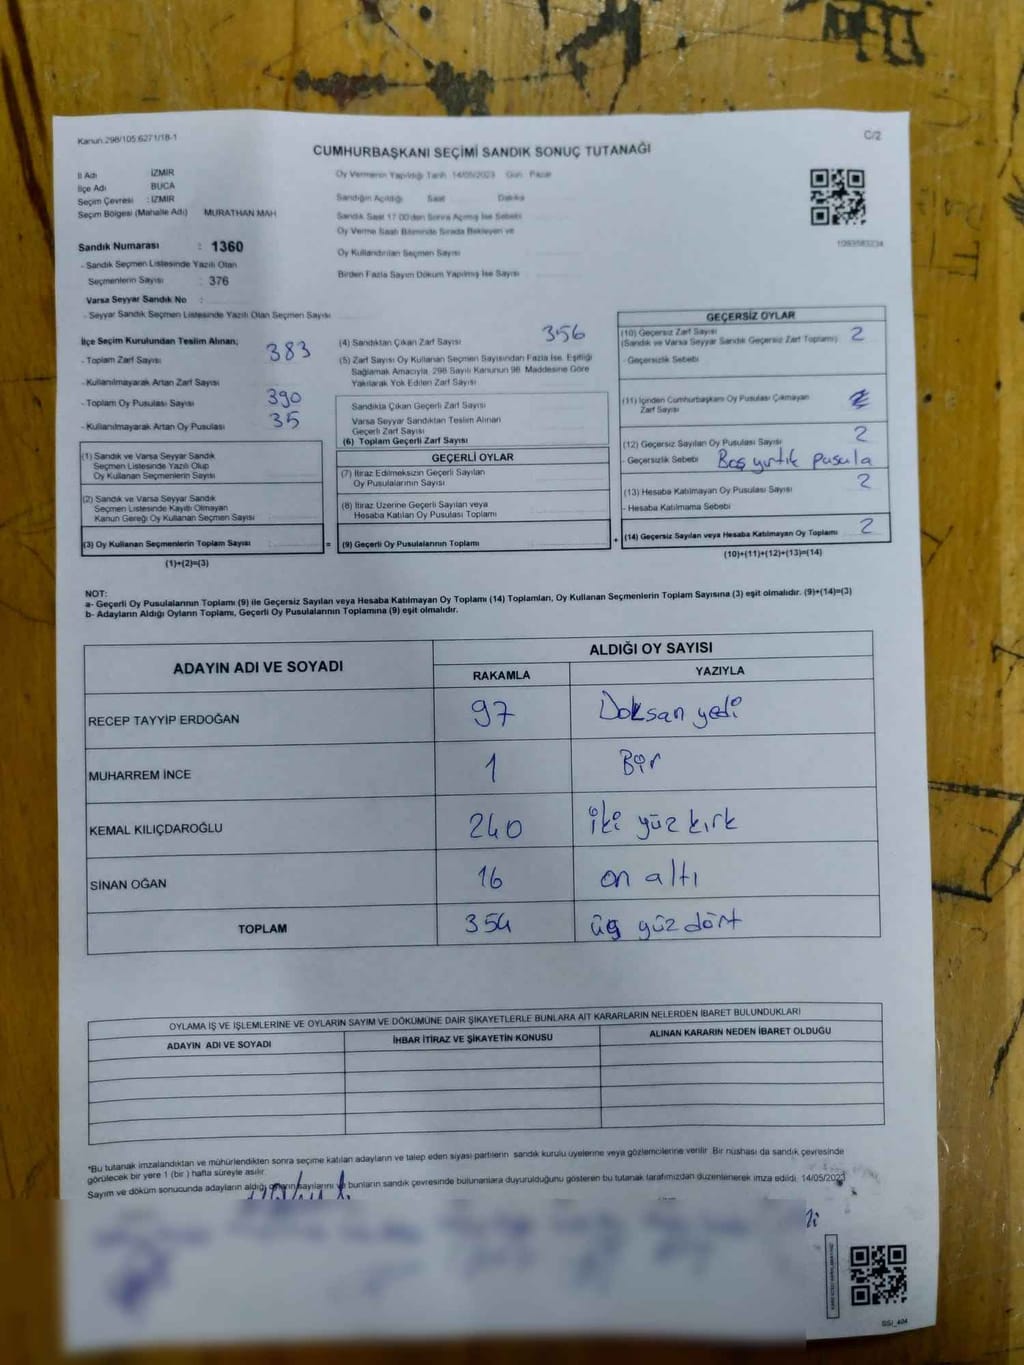 Kanun.298/105;6271/18-1
C/2
CUMHURBAŞKANI SEÇİMİ SANDIK SONUÇ TUTANAĞI
İl Adı İZMİR
İlçe Adı BUCA
Seçim Çevresi : İZMİR
Seçim Bölgesi (Mahalle Adı) MURATHAN MAH
Oy Vermenin Yapıldığı Tarih 14/05/2023 Gün Pazar
Sandığın Açıldığı Saat Dakika
Sandık Saat 17:00'den Sonra Açılmış İse Sebebi
Oy Verme Saati Bitiminde Sırada Bekleyen ve
Oy Kullandırılan Seçmen Sayısı
Birden Fazla Sayım Döküm Yapılmış İse Sayısı
Sandık Numarası : 1360
- Sandık Seçmen Listesinde Yazılı Olan
Seçmenlerin Sayısı : 376
Varsa Seyyar Sandık No :
- Seyyar Sandık Seçmen Listesinde Yazılı Olan Seçmen Sayısı
İlçe Seçim Kurulundan Teslim Alınan;
- Toplam Zarf Sayısı 383
- Kullanılmayarak Artan Zarf Sayısı
- Toplam Oy Pusulası Sayısı 390
- Kullanılmayarak Artan Oy Pusulası 35
(1) Sandık ve Varsa Seyyar Sandık
Seçmen Listesinde Yazılı Olup
Oy Kullanan Seçmenlerin Sayısı
(2) Sandık ve Varsa Seyyar Sandık
Seçmen Listesinde Kayıtlı Olmayan
Kanun Gereği Oy Kullanan Seçmen Sayısı
(3) Oy Kullanan Seçmenlerin Toplam Sayısı
(1)+(2)=(3)
(4) Sandıktan Çıkan Zarf Sayısı 356
(5) Zarf Sayısı Oy Kullanan Seçmen Sayısından Fazla İse, Eşitliği
Sağlamak Amacıyla, 298 Sayılı Kanunun 98. Maddesine Göre
Yakılarak Yok Edilen Zarf Sayısı
Sandıkta Çıkan Geçerli Zarf Sayısı
Varsa Seyyar Sandıktan Teslim Alınan
Geçerli Zarf Sayısı
(6) Toplam Geçerli Zarf Sayısı
GEÇERLİ OYLAR
(7) İtiraz Edilmeksizin Geçerli Sayılan
Oy Pusulalarının Sayısı
(8) İtiraz Üzerine Geçerli Sayılan veya
Hesaba Katılan Oy Pusulası Toplamı
= (9) Geçerli Oy Pusulalarının Toplamı
GEÇERSİZ OYLAR
(10) Geçersiz Zarf Sayısı 2
(Sandık ve Varsa Seyyar Sandık Geçersiz Zarf Toplamı)
- Geçersizlik Sebebi
(11) İçinden Cumhurbaşkanı Oy Pusulası Çıkmayan
Zarf Sayısı
(12) Geçersiz Sayılan Oy Pusulası Sayısı 2
- Geçersizlik Sebebi Boş yırtık pusula
(13) Hesaba Katılmayan Oy Pusulası Sayısı 2
- Hesaba Katılmama Sebebi
+ (14) Geçersiz Sayılan veya Hesaba Katılmayan Oy Toplamı 2
(10)+(11)+(12)+(13)=(14)
NOT:
a- Geçerli Oy Pusulalarının Toplamı (9) ile Geçersiz Sayılan veya Hesaba Katılmayan Oy Toplamı (14) Toplamları, Oy Kullanan Seçmenlerin Toplam Sayısına (3) eşit olmalıdır. (9)+(14)=(3)
b- Adayların Aldığı Oyların Toplamı, Geçerli Oy Pusulalarının Toplamına (9) eşit olmalıdır.
ADAYIN ADI VE SOYADI ALDIĞI OY SAYISI
RAKAMLA YAZIYLA
RECEP TAYYİP ERDOĞAN 97 Doksan yedi
MUHARREM İNCE 1 Bir
KEMAL KILIÇDAROĞLU 240 iki yüz kırk
SİNAN OĞAN 16 on altı
TOPLAM 354 üç yüz dört
OYLAMA İŞ VE İŞLEMLERİNE VE OYLARIN SAYIM VE DÖKÜMÜNE DAİR ŞİKAYETLERLE BUNLARA AİT KARARLARIN NELERDEN İBARET BULUNDUKLARI
ADAYIN ADI VE SOYADI İHBAR İTİRAZ VE ŞİKAYETİN KONUSU ALINAN KARARIN NEDEN İBARET OLDUĞU
*Bu tutanak imzalandıktan ve mühürlendikten sonra seçime katılan adayların ve talep eden siyasi partilerin sandık kurulu üyelerine veya gözlemcilerine verilir. Bir nüshası da sandık çevresinde
görülecek bir yere 1 (bir) hafta süreyle asılır.
Sayım ve döküm sonucunda adayların aldığı oyların sayılarını ve bunların sandık çevresinde bulunanlara duyurulduğunu gösteren bu tutanak tarafımızdan düzenlenerek imza edildi. 14/05/2023